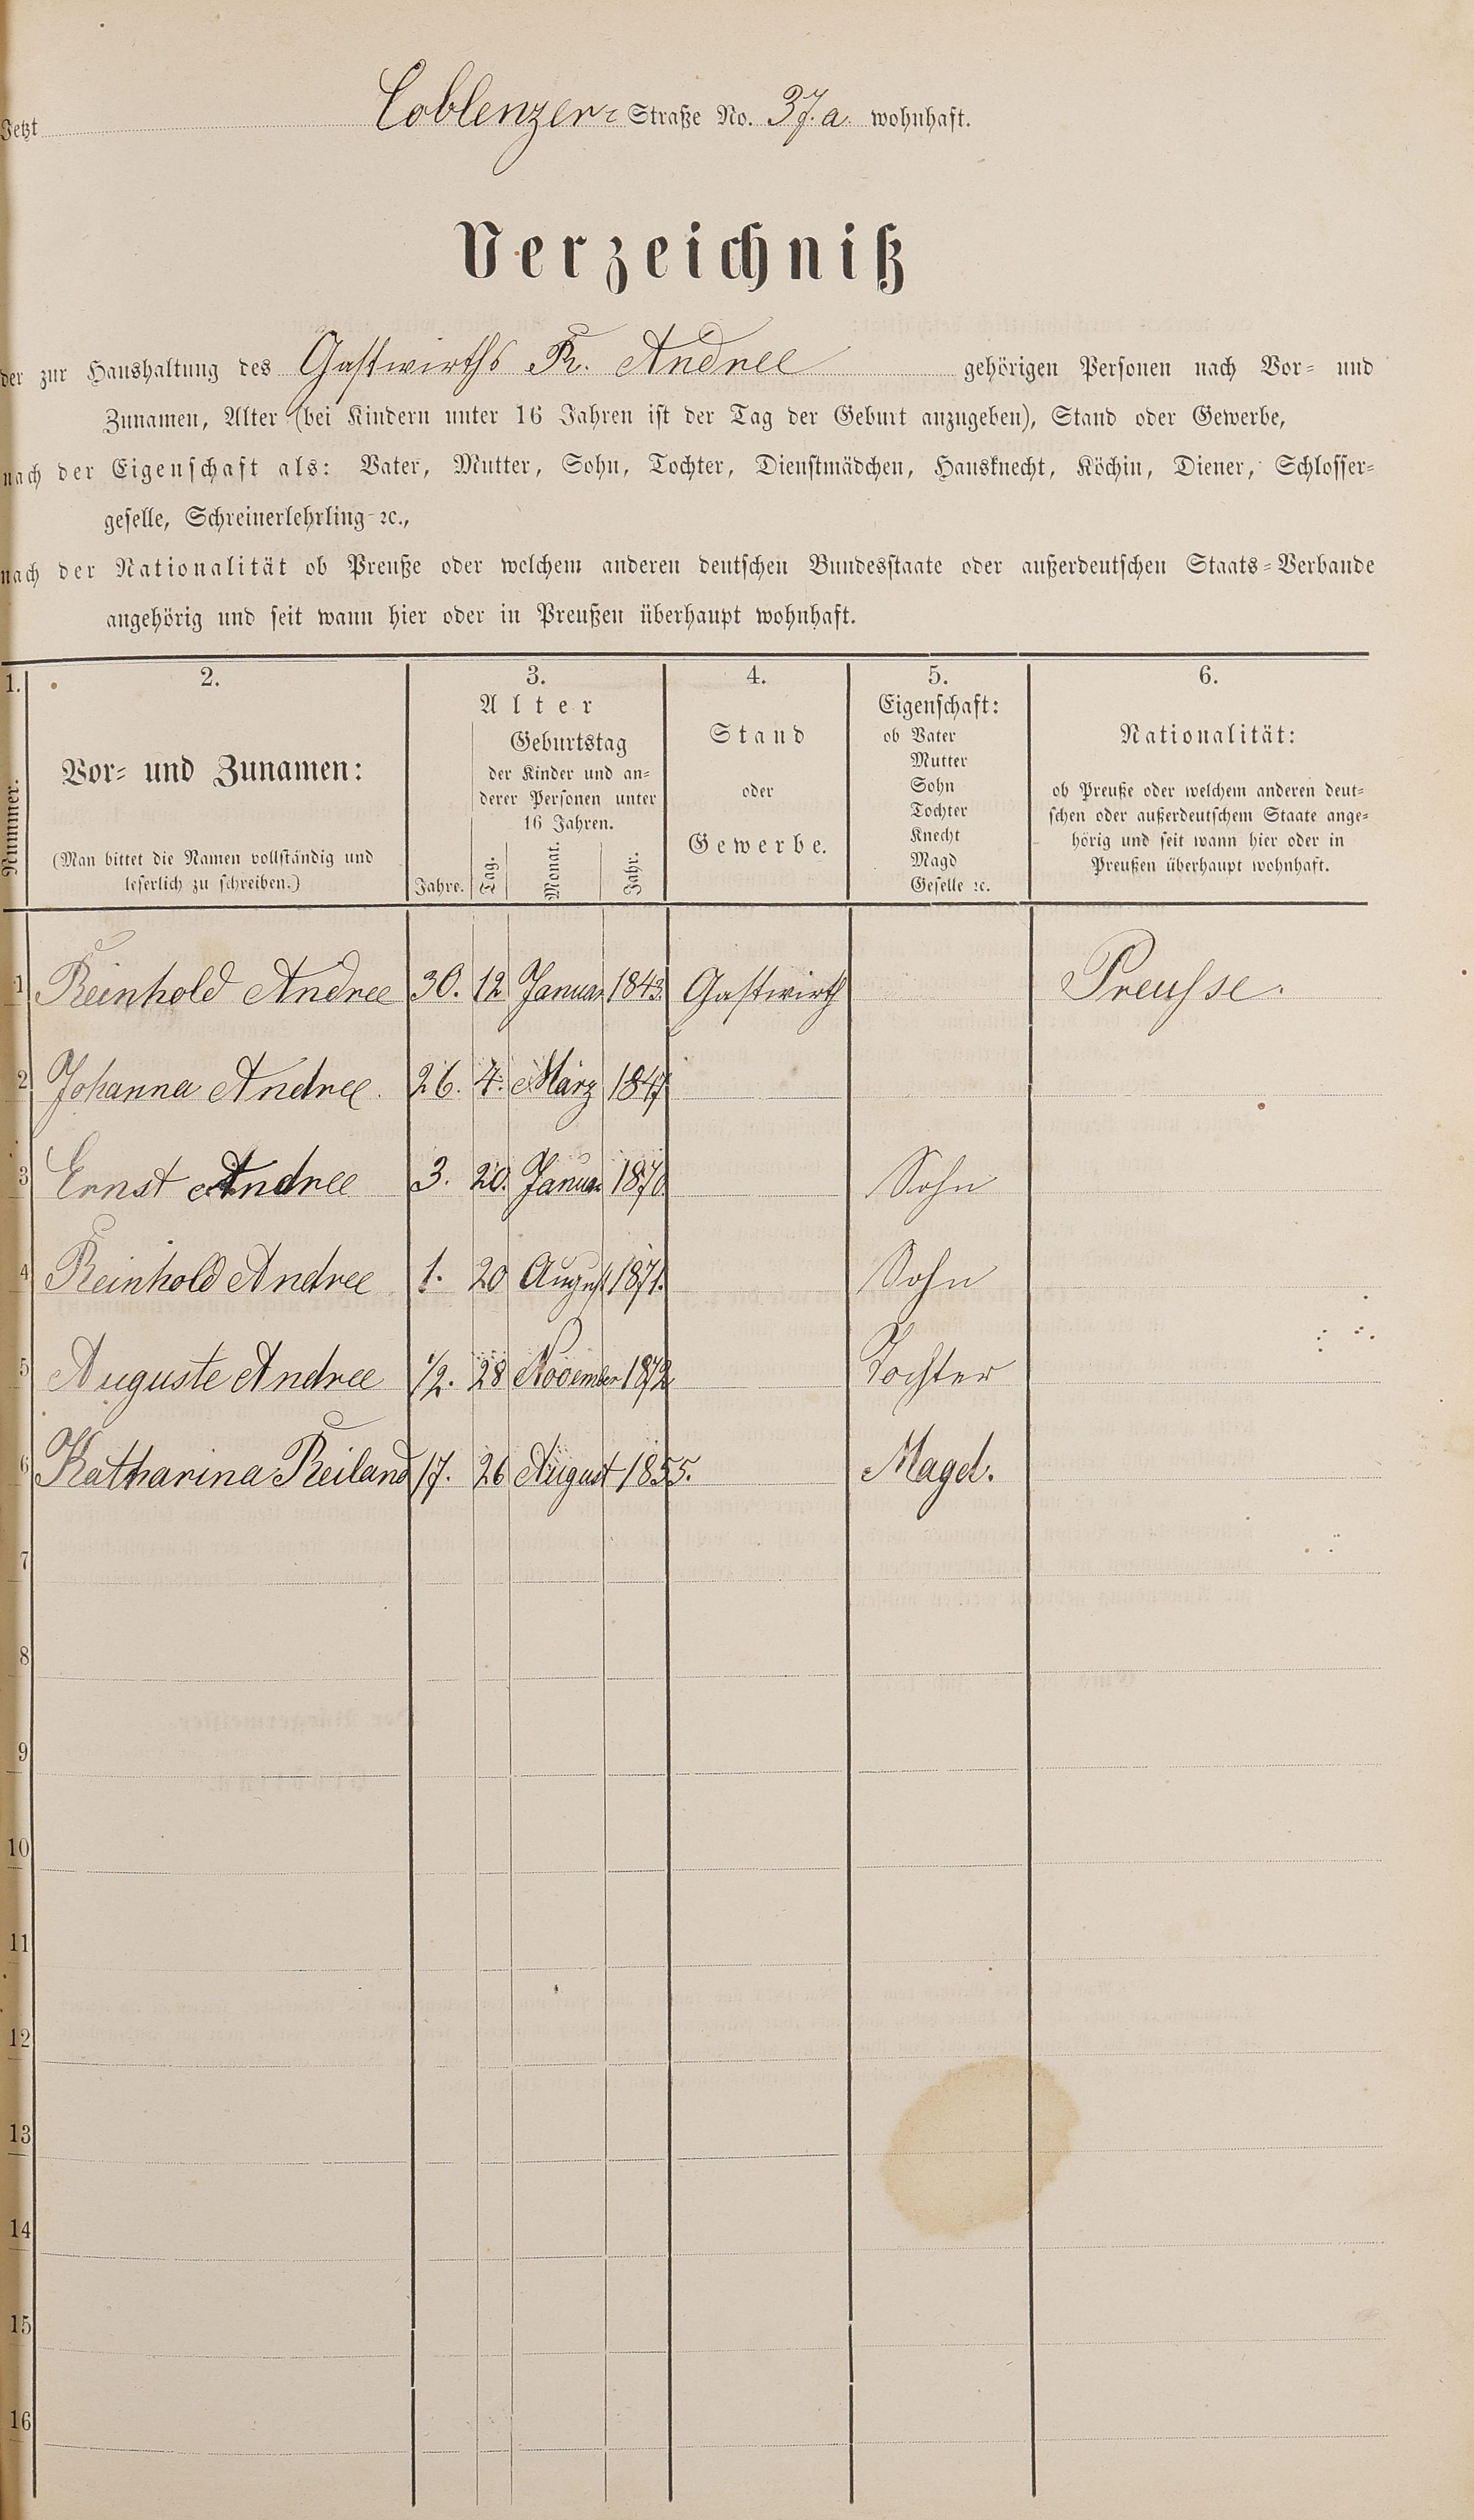 Jetzt Coblenzer= Straße No. 37.a. wohnhaft.
Verzeichniß
der zur Haushaltung des Gastwirths R. Andree gehörigen Personen nach Vor= und
Zunamen, Alter (bei Kindern unter 16 Jahren ist der Tag der Geburt anzugeben), Stand oder Gewerbe,
nach der Eigenschaft als: Vater, Mutter, Sohn, Tochter, Dienstmädchen, Hausknecht, Köchin, Diener, Schlosser=
geselle, Schreinerlehrling ꝛc.,
nach der Nationalität ob Preuße oder welchem anderen deutschen Bundesstaate oder außerdeutschen Staats=Verbande
angehörig und seit wann hier oder in Preußen überhaupt wohnhaft.
1. 2. 3. 4. 5. 6.
Nummer.
Vor= und Zunamen:
(Man bittet die Namen vollständig und
leserlich zu schreiben.)
Alter
Geburtstag
der Kinder und an=
derer Personen unter
16 Jahren.
Jahre. Tag. Monat. Jahr.
Stand
oder
Gewerbe.
Eigenschaft:
ob Vater
Mutter
Sohn
Tochter
Knecht
Magd
Geselle ꝛc.
Nationalität:
ob Preuße oder welchem anderen deut=
schen oder außerdeutschem Staate ange=
hörig und seit wann hier oder in
Preußen überhaupt wohnhaft.
1 Reinhold Andree 30. 12 Januar 1843. Gastwirth Preusse.
2 Johanna Andree. 26. 4. März 1847
3 Ernst Andree 3. 20. Januar 1870 Sohn
4 Reinhold Andree 1. 20 August 1871. Sohn
5 Auguste Andree 1/2. 28 November 1872 Tochter
6 Katharina Reiland 17. 26 August 1855. Magd.
7
8
9
10
11
12
13
14
15
16